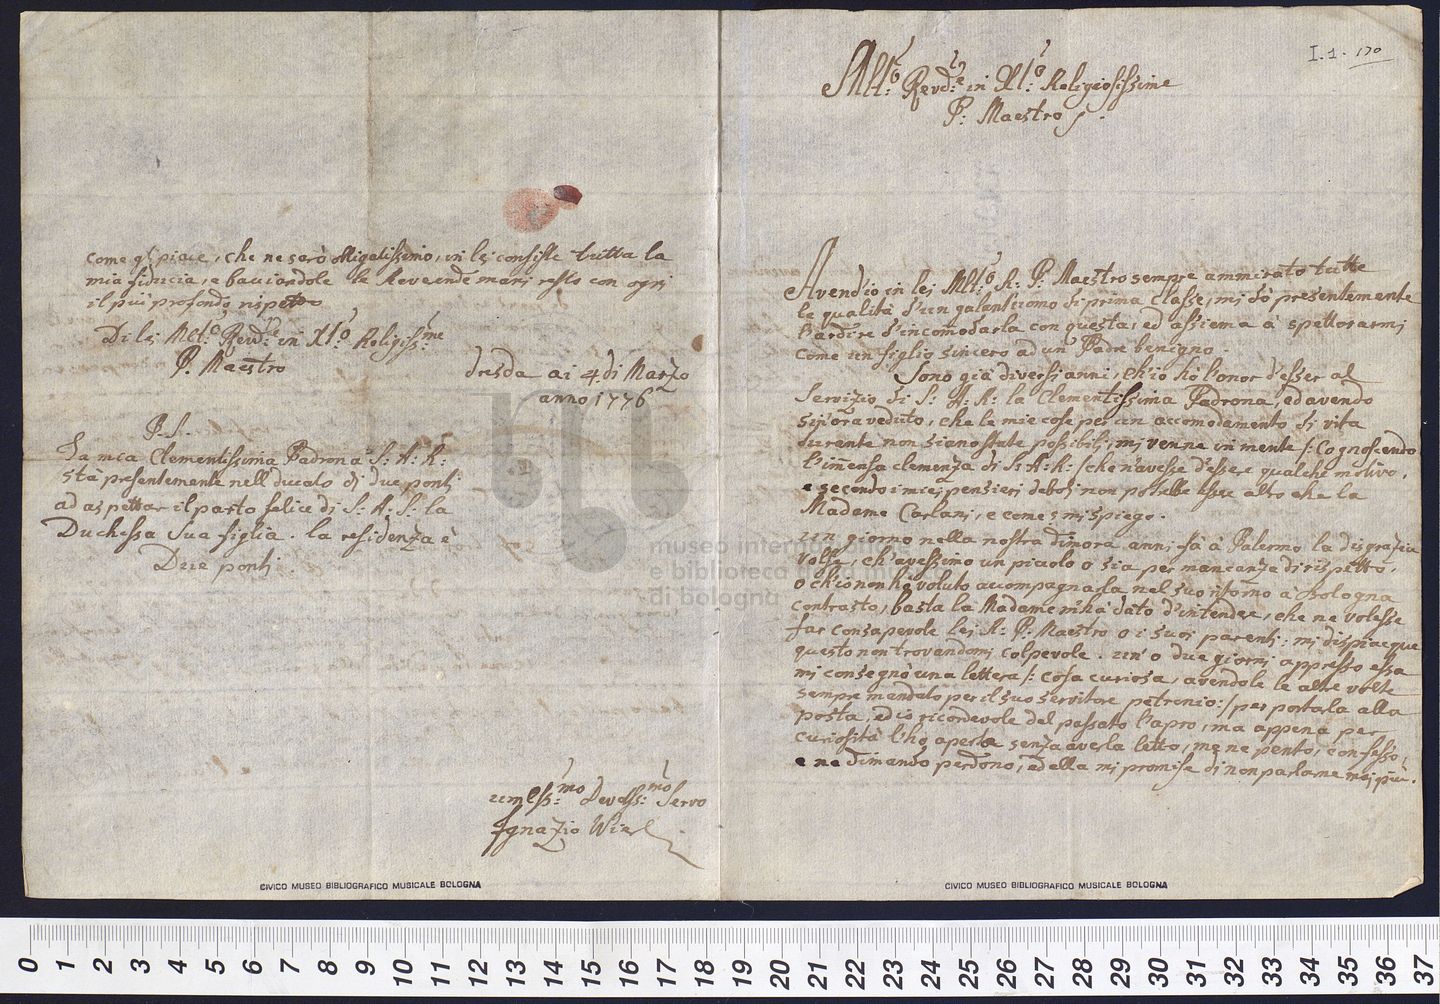 I.1. 170
Mlt:o Revd:e in Xto: Religiosissime
P: Maestro
Avendio in lei Mlt:o R: P: Maestro sempre ammirato tutte
le qualità d'un galantuomo di prima classe, mi dò presentemente
l'ardire d'incomodarla con questa, ed assiema à spettorarmi
come un figlio sincero ad un' Padre benigno.
Sono già diversi anni, ch'io hò l'onor d'esser al
Servizio di S: A: R: la Clementissima Padrona, ed avendo
sin'ora veduto, che le mie cose per un accomodamento di vita
durente non siano state possibili, mi venne in mente /: Cognoscendo
l'immensa clemenza di S: A: R: / che n'avesse d'esser qualche motivo,
e secondo i miej pensieri deboli non potesse essere altro che la
Madame Carlani, e come? mi spiego.
un giorno nella nostra dimora anni fà à Palermo la disgrazia
volse, ch'avessimo un picciolo o sia per mancanza di rispetto,
o ch'io non hò voluto accompagnarla nel suo ritorno à Bologna
contrasto, basta la Madame m'hà dato d'intender, che ne volesse
far consapevole lei R: P: Maestro o i suoi parenti: mi dispiacque
questo non trovandomi colpevole. un' o due giorni appresso essa
mi consegnò una lettera /: cosa curiosa, avendole le altre volte
sempre mandato per il suo servitore petronio: / per portarla alla
posta, ed io ricordevole del passato l'apro, ma appena per
curiosità l'hò aperta senza averla letto, me ne pento, confesso,
e ne dimando perdono, ed ella mi promise di non parlarne mai più.
come gli piace, che ne sarò obligatissimo, in lei consiste tutta la
mia fiducia, e bauciandole le Reverende mani resto con ogni
il più profondo rispetto
Di lei Mlt:o Revd:e in Xto: Religiss:me
P: Maestro
dresda ai 4. di Marzo
anno 1776
P.S.
La mea Clementissima Padrona S: A: R:
stà presentemente nell' ducato di due ponti
ad aspettar il parto felice di S: A: S: la
Duchessa Sua figlia. la residenza è
Due ponti
umless:mo Devotss:mo Servo
Ignazio
CIVICO MUSEO BIBLIOGRAFICO MUSICALE BOLOGNA
CIVICO MUSEO BIBLIOGRAFICO MUSICALE BOLOGNA
museo internazionale
e biblioteca della musica
di bologna
0 1 2 3 4 5 6 7 8 9 10 11 12 13 14 15 16 17 18 19 20 21 22 23 24 25 26 27 28 29 30 31 32 33 34 35 36 37